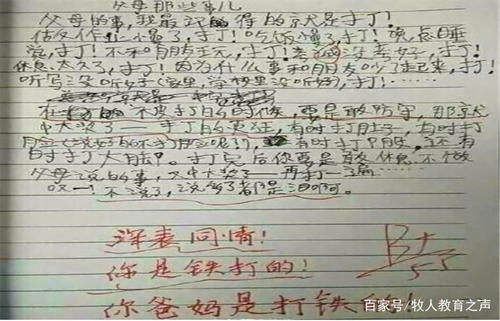 父母那些事儿
父母的事,我最记得的就是打了!
估反作业慢了,打!吃饭慢了,打!晚起睡
觉,打!不和朋友玩,打!考试没考好,打!
休息太久了,打!因为什么事和朋友吵了起来,打!
听写没听好(家里,学校里没听好),打!
在 不被打的时候,要是敢防守,那就
中大奖了——打的更狂,有时打肚子,有时打
(说好的不打 呢!),有时打 ,还有
有时打大腿。打完后你要是敢休息不做
父母说的事,又中大奖了——再打一遍
哎!不说了,说多了都是泪啊。
深表同情!
你是铁打的!
你爸妈是打铁的!
B+
百家号/牧人教育之声